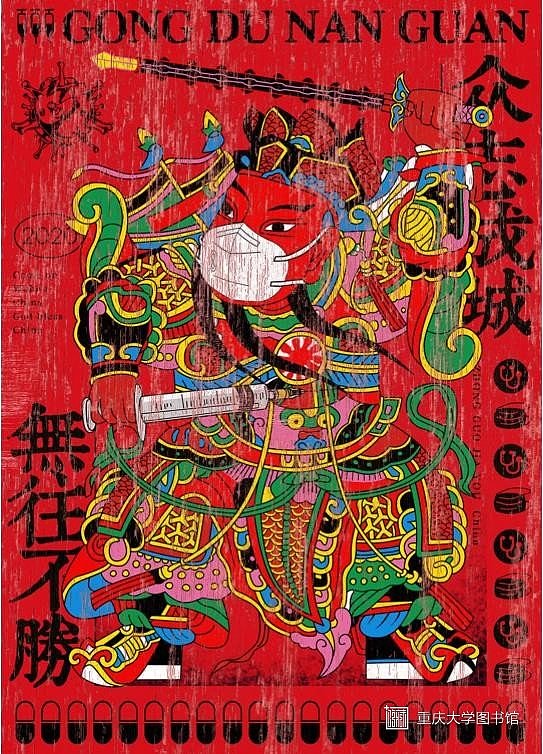 GONG DU NAN GUAN
众志成城
2020
China
God bless
China
無往不勝
重庆大学图书馆